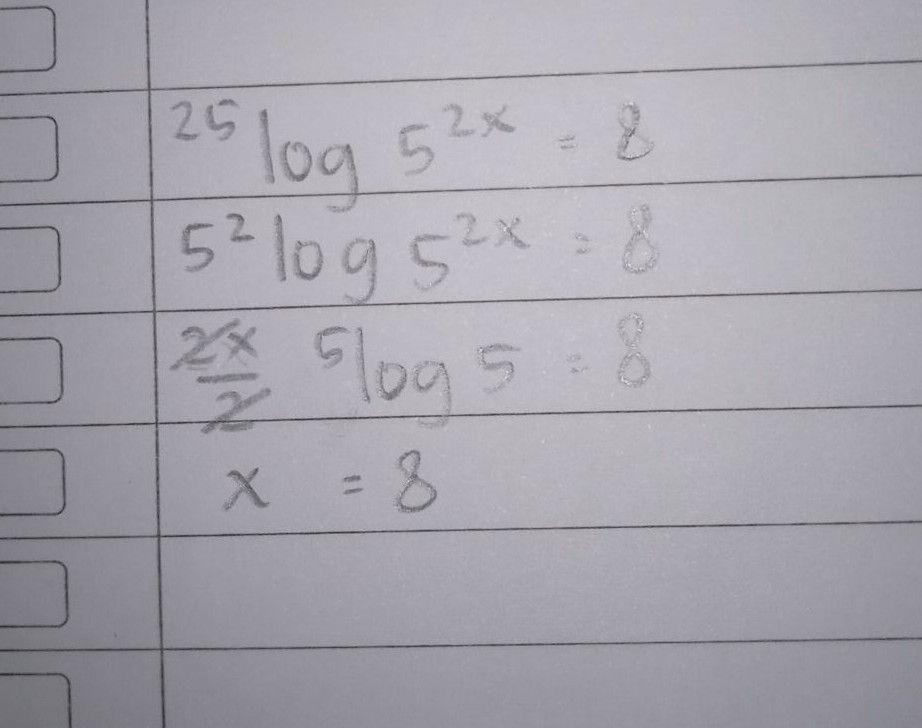 ²⁵log 5²ˣ = 8
5² log 5²ˣ = 8
2x/2 ⁵log 5 = 8
x = 8